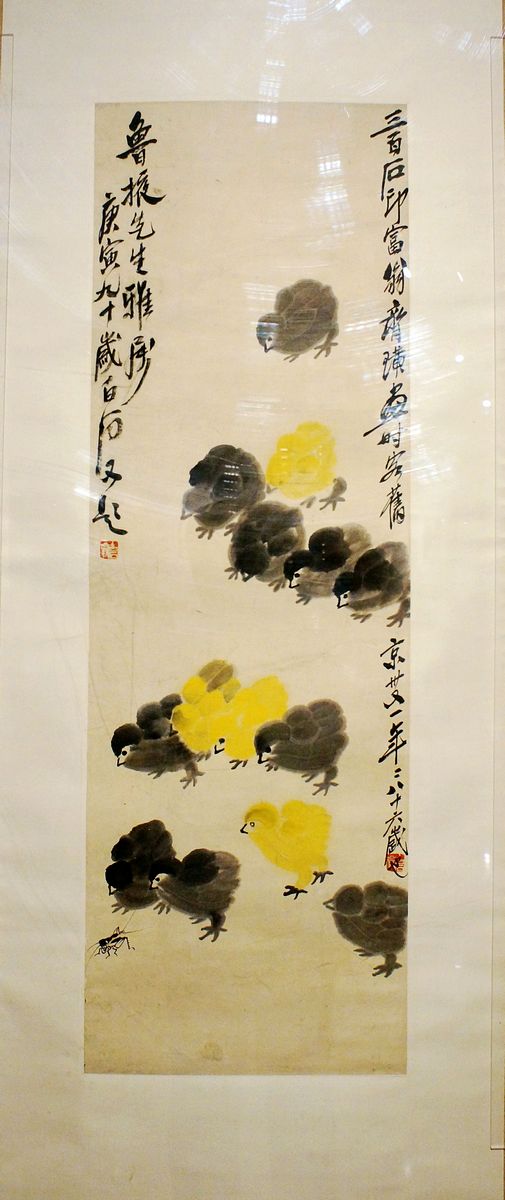 三百石印富翁齊璜畫時客舊
京廿又一年三八十六歲
魯掖先生雅屬
庚寅九十歲白石又題